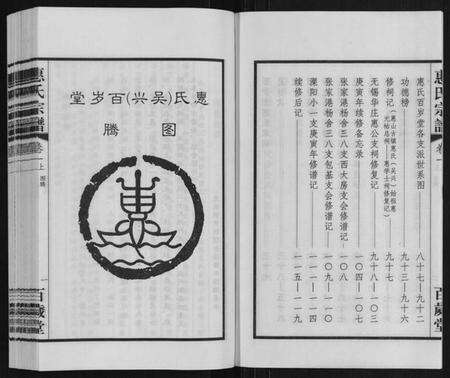 惠氏宗譜
卷一
百歲堂
惠氏百岁堂各支派世系图 八十七-九十二
功德榜 九十三-九十六
修祠记︵惠山古镇惠氏︵吴兴︶始祖惠
元祐总祠——惠学士祠修复记︶ 九十七
无锡华庄惠公支祠修复记 九十八-一〇三
庚寅年续修备忘录 一〇四-一〇七
张家港杨舍三八支西大房支会修谱记 一〇八
张家港杨舍三八支包基支会修谱记 一〇九-一一〇
溧阳小一支庚寅年修谱记 一一一-一一四
续修后记 一一五-一一九
惠氏(吴兴)百岁堂
图腾
惠氏宗譜
卷一上
图腾
一
百歲堂